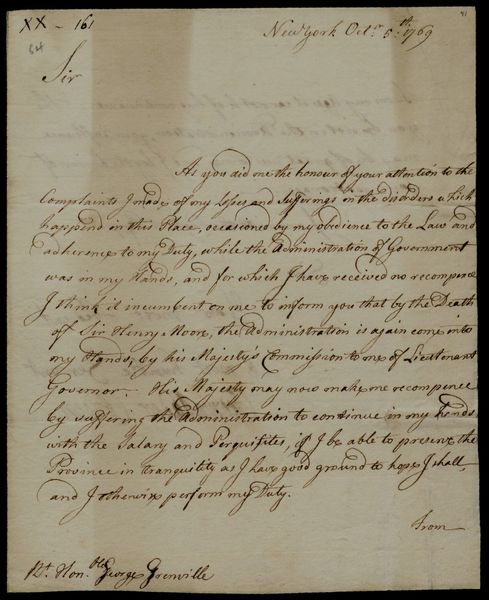 XX - 161
64
91
New York Octr. 5th. 1769
Sir
As you did me the honour of your attention to the
Complaints I made of my losses and sufferings in the disorders which
happend in this Place, occasioned by my obedience to the Law and
adherence to my Duty, while the Administration of Government
was in my Hands, and for which I have received no recompence
I think it incumbent on me to inform you that by the Death
of Sir Henry Moore, the Administration is again come into
my Hands, by his Majesty's Commission to me of Lieutenant
Governor. His Majesty may now make me recompence
by suffering the Administration to continue in my hands
with the Salary and Perquisites, if I be able to preserve the
Province in Tranquility as I have good ground to hope I shall,
and I otherwise perform my Duty.
From
Rt. Honble. George Grenville